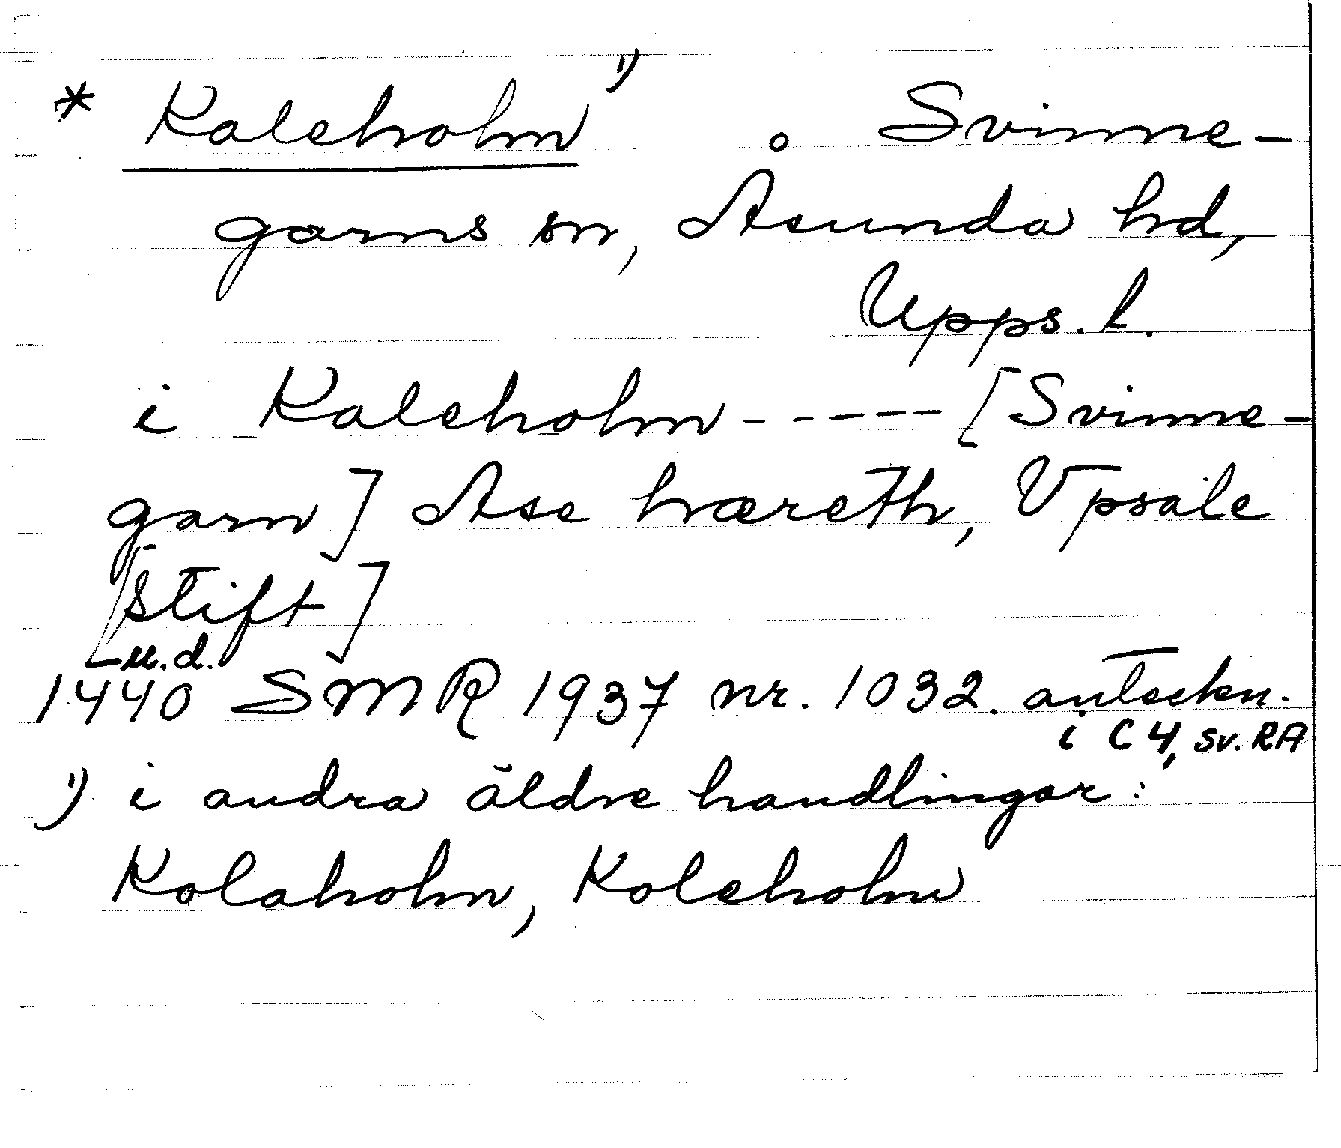 * Kaleholm 1) o Svinne-
garns sn, Åsunda hd,
Upps. l.
i Kaleholm ----- [Svinne-
garn] Ase hæreth, Vpsale
[stift]
1440 u.d. SMR 1937 nr. 1032. anteckn.
i C 4, sv. RA
1) i andra äldre handlingar:
Kolaholm, Koleholm